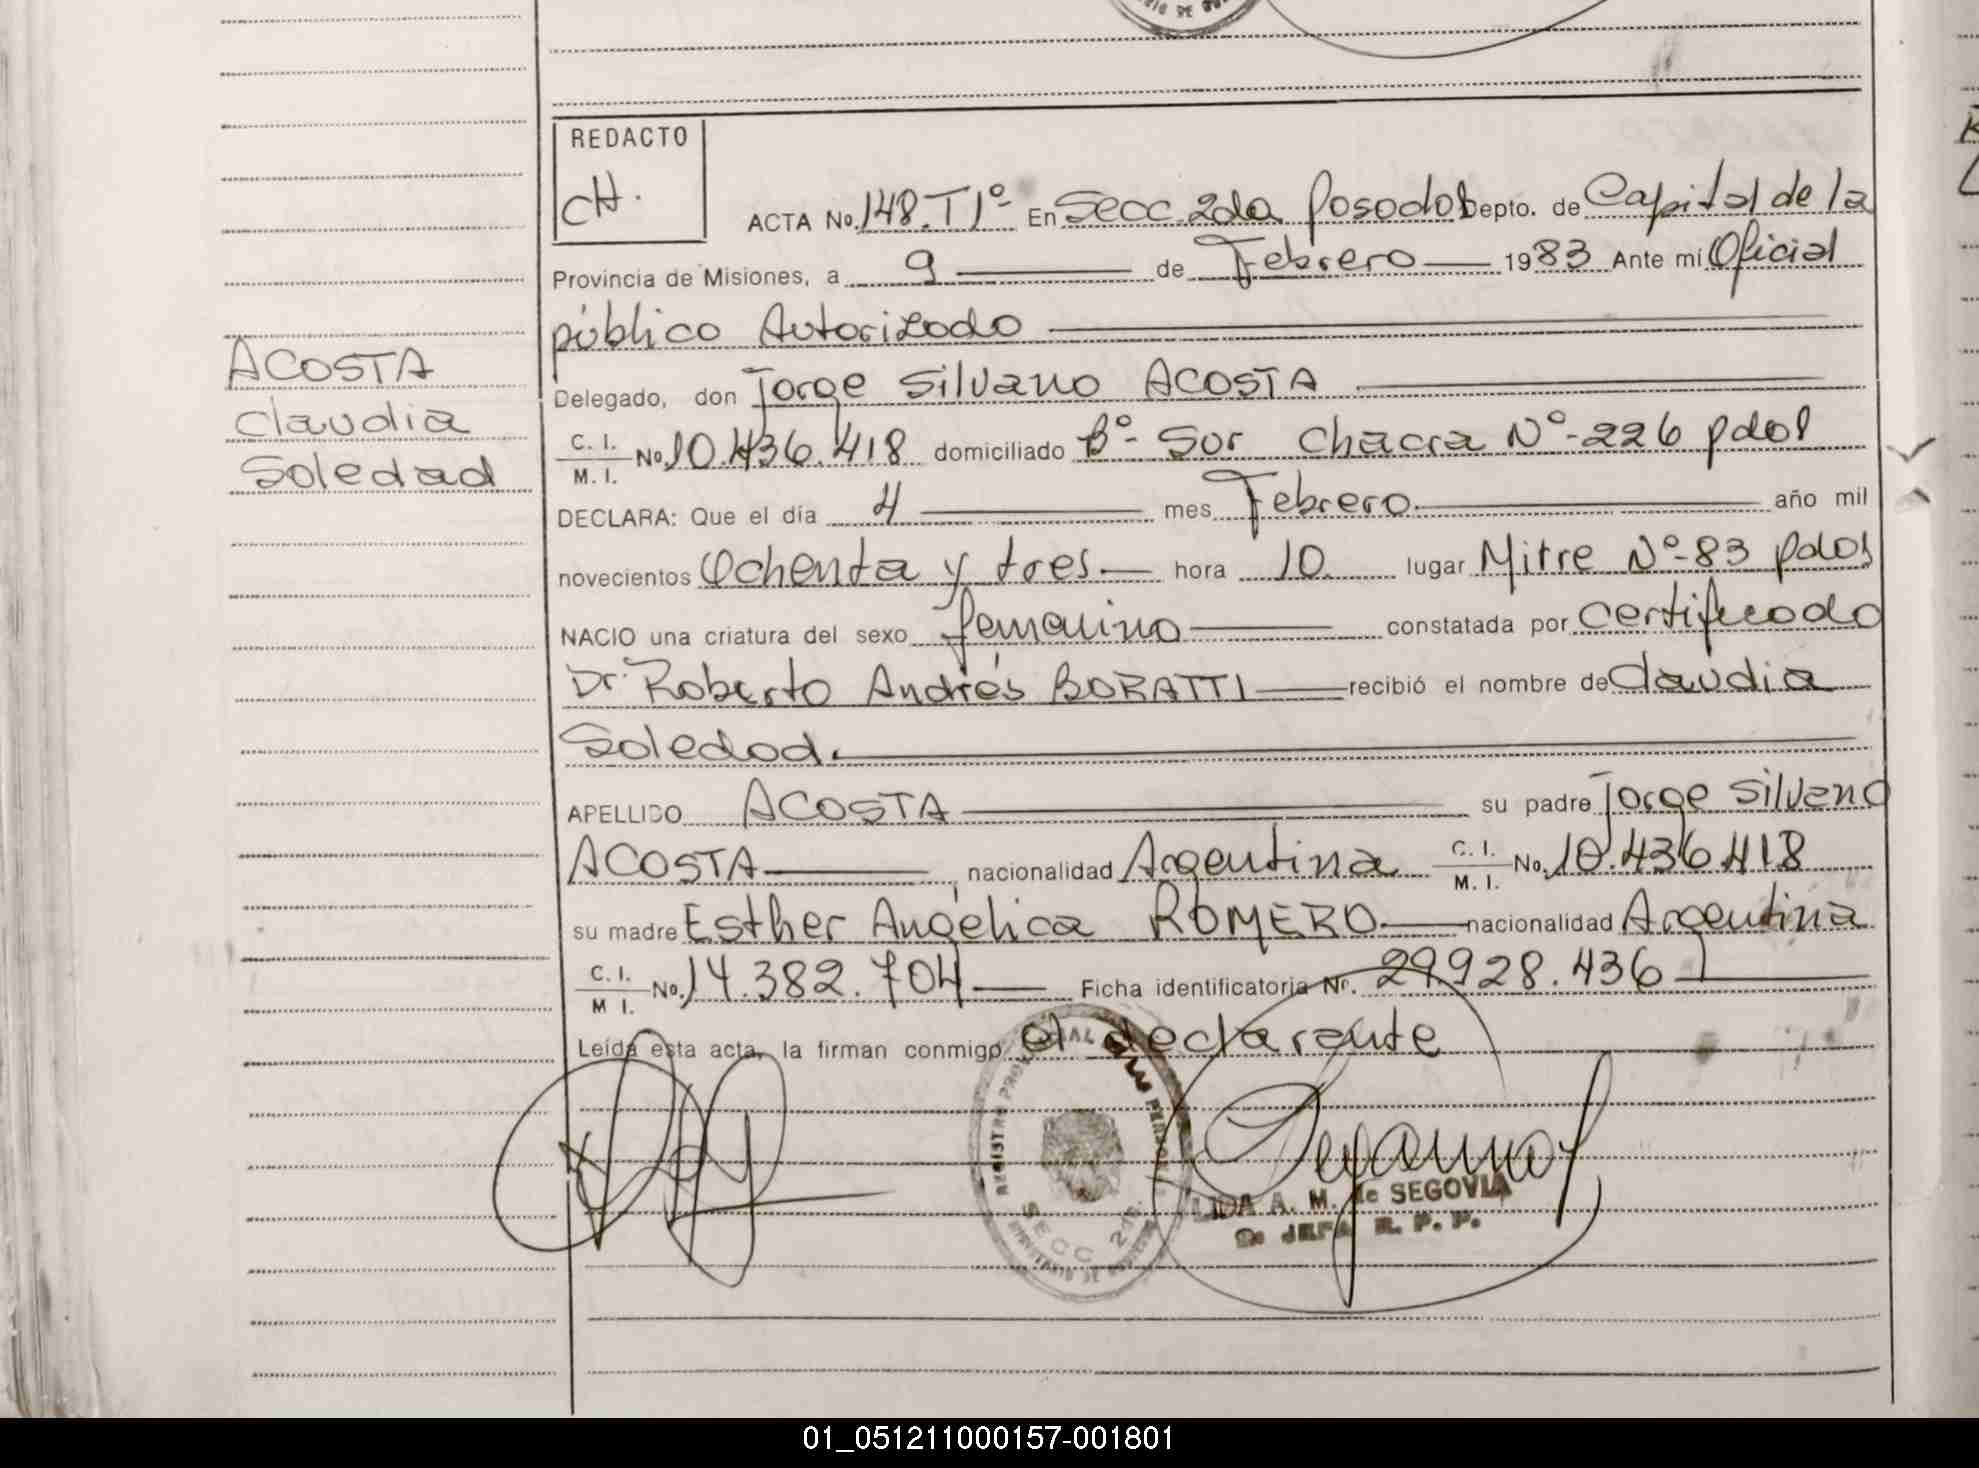 REDACTO
CH.
ACTA No. 148. T1º En Secc 2da Posadas Depto. de Capital de la
Provincia de Misiones, a 9 de Febrero 1983 Ante mi Oficial
público Autorizado
ACOSTA
Claudia
Soledad
Delegado, don Jorge Silvano ACOSTA
C. I.
M. I. No. 10.436.418 domiciliado Bº- Sur Chacra Nº-226 pdas
DECLARA: Que el día 4 mes Febrero año mil
novecientos Ochenta y tres hora 10 lugar Mitre Nº-83 Pdas
NACIO una criatura del sexo femenino constatada por Certificado
Dr. Roberto Andrés BORATTI recibió el nombre de Claudia
Soledad.
APELLIDO ACOSTA su padre Jorge Silvano
ACOSTA nacionalidad Argentina C. I. M. I. No. 10.436.418
su madre Esther Angélica ROMERO nacionalidad Argentina
C. I.
M I. No. 14.382.704 Ficha identificatoria Nr. 29.928.436
Leída esta acta, la firman conmigo el declarante
REGISTRO PROVINCIAL
SECC 2da.
LIDA A. M. de SEGOVIA
JEFA R. P. P.
01_051211000157-001801